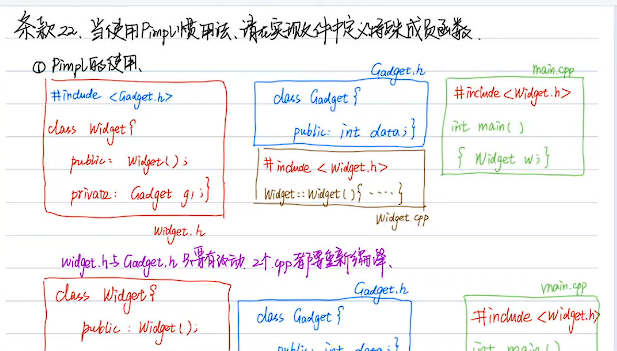 条款22. 当使用Pimpl惯用法、请在实现文件中定义特殊成员函数.
① Pimpl的使用、
#include <Gadget.h>
class Widget{
public: Widget();
private: Gadget g1;}
Widget.h
Gadget.h
class Gadget{
public: int data;}
#include <Widget.h>
Widget::Widget(){ ····}
Widget.cpp
main.cpp
#include <Widget.h>
int main()
{ Widget w;}
Widget.h与Gadget.h 只要有改动 2个cpp都要重新编译、
class Widget{
public: Widget();
Gadget.h
class Gadget{
public: int data;}
main.cpp
#include <Widget.h>
int main()